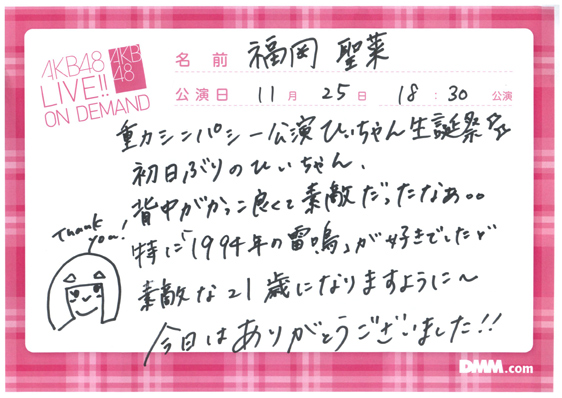 AKB48
LIVE!!
ON DEMAND
AKB
48
名前 福岡 聖菜
公演日 11月 25日 18:30 公演
重力シンパシー公演 ひぃちゃん生誕祭
初日ぶりのひぃちゃん、
背中がかっこ良くて素敵だったなぁ。。
特に「1994年の雷鳴」が好きでした
素敵な21歳になりますように〜
今日はありがとうございました!!
Thank
you!
DMM.com